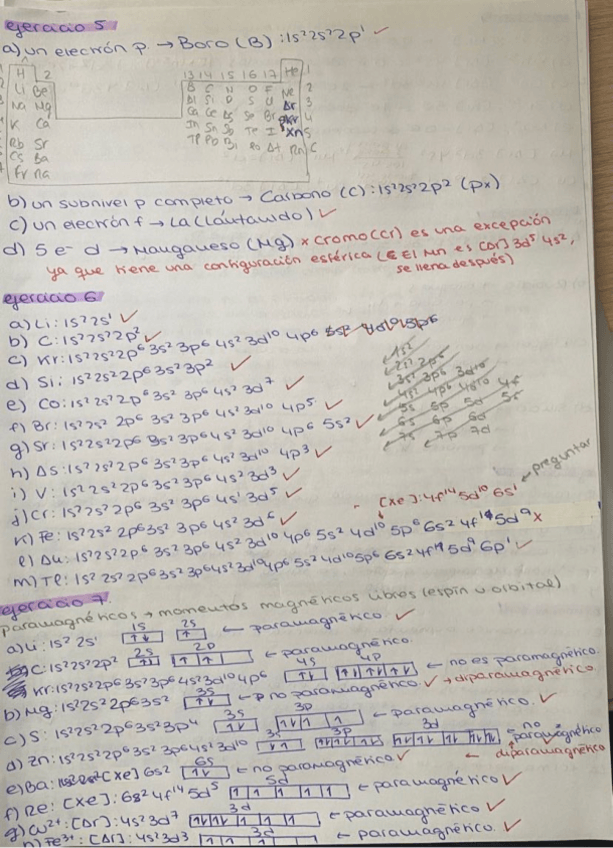 ejercicio 5
a) un electrón p → Boro (B) : 1s² 2s² 2p¹ ✓
H 2 13 14 15 16 17 He 1
Li Be B C N O F Ne 2
Na Mg Al Si P S Cl Ar 3
K Ca Ga Ge As Se Br Kr 4
Rb Sr In Sn Sb Te I Xn 5
Cs Ba Tl Pb Bi Po At Rn 6
Fr Ra
b) un subnivel p completo → Carbono (C) : 1s² 2s² 2p² (px)
c) un electrón f → La (Lántanido) ✓
d) 5 e⁻ d → Manganeso (Mg) × cromo (cr) es una excepción
ya que tiene una configuración esférica (El Mn es [Ar] 3d⁵ 4s²,
se llena después)
ejercicio 6
a) Li : 1s² 2s¹ ✓
b) C : 1s² 2s² 2p² ✓
c) Kr : 1s² 2s² 2p⁶ 3s² 3p⁶ 4s² 3d¹⁰ 4p⁶
d) Si : 1s² 2s² 2p⁶ 3s² 3p² ✓
e) Co : 1s² 2s² 2p⁶ 3s² 3p⁶ 4s² 3d⁷ ✓
f) Br : 1s² 2s² 2p⁶ 3s² 3p⁶ 4s² 3d¹⁰ 4p⁵ ✓
g) Sr : 1s² 2s² 2p⁶ 3s² 3p⁶ 4s² 3d¹⁰ 4p⁶ 5s² ✓
h) As : 1s² 2s² 2p⁶ 3s² 3p⁶ 4s² 3d¹⁰ 4p³ ✓
i) V : 1s² 2s² 2p⁶ 3s² 3p⁶ 4s² 3d³ ✓
j) Cr : 1s² 2s² 2p⁶ 3s² 3p⁶ 4s¹ 3d⁵ ✓
k) Fe : 1s² 2s² 2p⁶ 3s² 3p⁶ 4s² 3d⁶ ✓
[Xe] : 4f¹⁴ 5d¹⁰ 6s¹ ← preguntar
l) Au : 1s² 2s² 2p⁶ 3s² 3p⁶ 4s² 3d¹⁰ 4p⁶ 5s² 4d¹⁰ 5p⁶ 6s² 4f¹⁴ 5d⁹ ×
m) Tl : 1s² 2s² 2p⁶ 3s² 3p⁶ 4s² 3d¹⁰ 4p⁶ 5s² 4d¹⁰ 5p⁶ 6s² 4f¹⁴ 5d⁹ 6p¹ ✓
1s²
2s² 2p⁶
3s² 3p⁶ 3d¹⁰
4s² 4p⁶ 4d¹⁰ 4f
5s 5p 5d 5f
6s 6p 6d
7s 7p 7d
ejercicio 7
paramagnéticos → momentos magnéticos libres (espín u orbital)
a) Li : 1s² 2s¹ 1s 2s ← paramagnético ✓
C : 1s² 2s² 2p² 2s 2p ← paramagnético.
Kr : 1s² 2s² 2p⁶ 3s² 3p⁶ 4s² 3d¹⁰ 4p⁶ 4s 4p ← no es paramagnético.
b) Mg : 1s² 2s² 2p⁶ 3s² 3s ← no paramagnético ✓ → diparamagnético
c) S : 1s² 2s² 2p⁶ 3s² 3p⁴ 3s 3p ← paramagnético. ✓
d) Zn : 1s² 2s² 2p⁶ 3s² 3p⁶ 4s² 3d¹⁰ 3s 3p 3d no paramagnético
e) Ba : [Xe] 6s² 6s ← no paramagnético ✓ ← diparamagnético
f) Re : [Xe] : 6s² 4f¹⁴ 5d⁵ 5d ← paramagnético ✓
g) Cu²⁺ : [Ar] : 4s² 3d⁷ 3d ← paramagnético ✓
h) Fe³⁺ : [Ar] : 4s² 3d³ 3d ← paramagnético. ✓